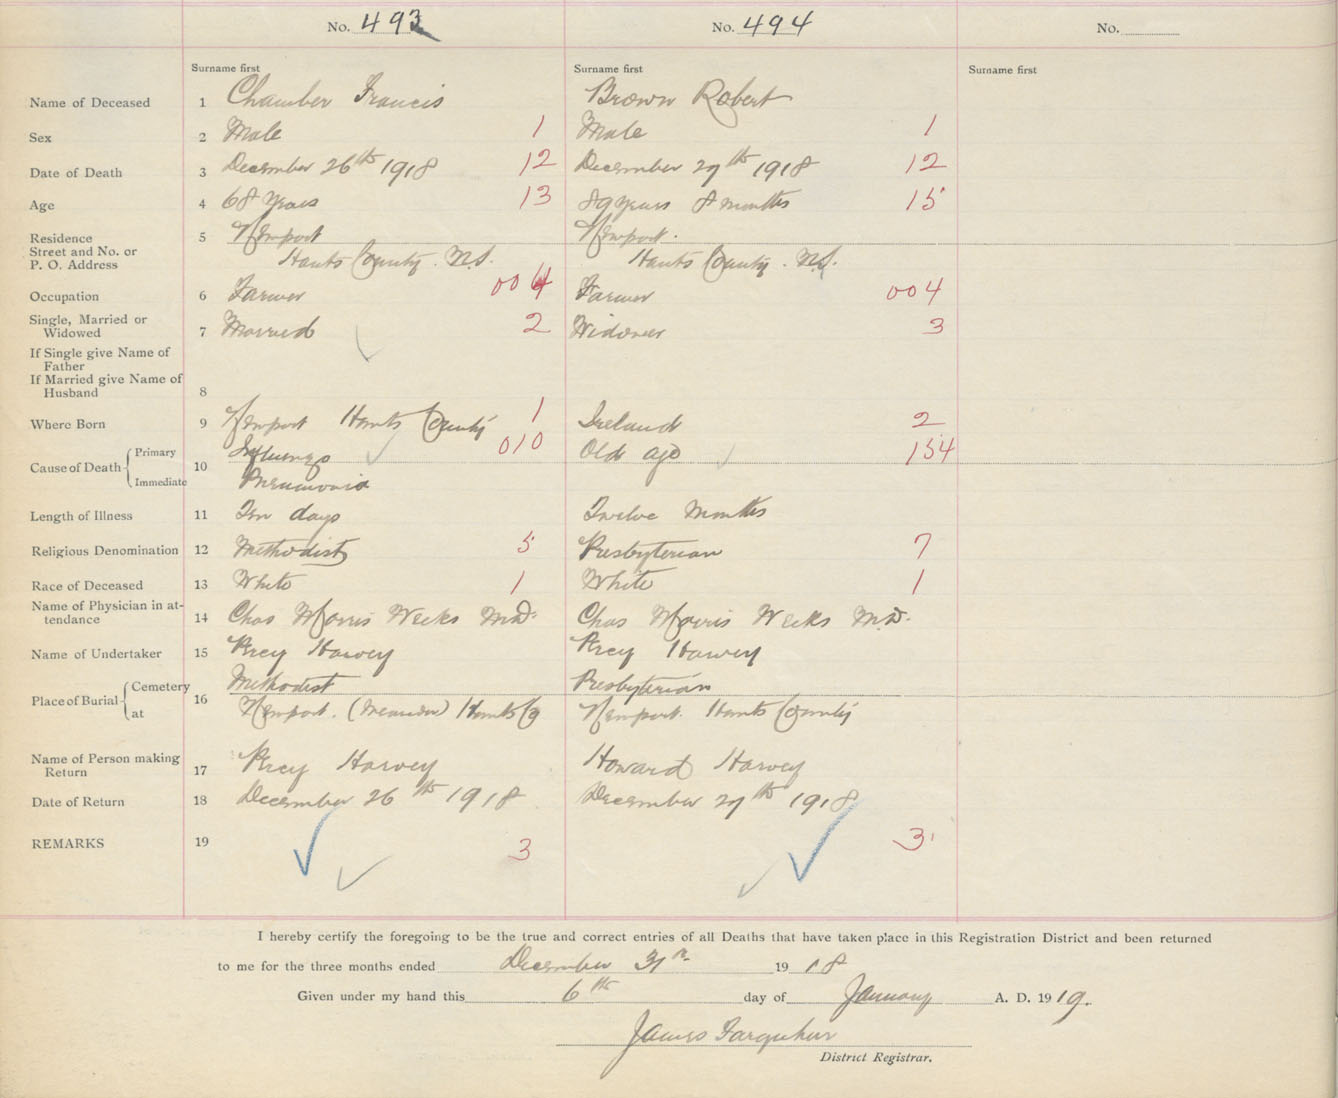 No. 493 No. 494 No.
Surname first Surname first Surname first
Name of Deceased 1 Chamber Francis Brown Robert
Sex 2 Male 1 Male 1
Date of Death 3 December 26th 1918 12 December 29th 1918 12
Age 4 68 Years 13 89 Years 8 months 15
Residence 5 Newport Newport.
Street and No. or
P. O. Address Hants County. N.S. Hants County. N.S.
Occupation 6 Farmer 004 Farmer 004
Single, Married or
Widowed 7 Married 2 Widower 3
If Single give Name of
Father
If Married give Name of
Husband 8
Where Born 9 Newport Hants County 1 Ireland 2
Cause of Death Primary 10 Influenza 010 Old age 154
Immediate Pneumonia
Length of Illness 11 Ten days Twelve Months
Religious Denomination 12 Methodist 5 Presbyterian 7
Race of Deceased 13 White 1 White 1
Name of Physician in at-
tendance 14 Chas Morris Weeks M.D. Chas Morris Weeks M.D.
Name of Undertaker 15 Percy Harvey Percy Harvey
Place of Burial Cemetery 16 Methodist Presbyterian
at Newport. (Meander) Hants Co Newport. Hants County
Name of Person making
Return 17 Percy Harvey Howard Harvey
Date of Return 18 December 26th 1918 December 29th 1918
REMARKS 19 3 3
I hereby certify the foregoing to be the true and correct entries of all Deaths that have taken place in this Registration District and been returned
to me for the three months ended December 31st 1918
Given under my hand this 6th day of January A. D. 1919.
James Farquhar
District Registrar.